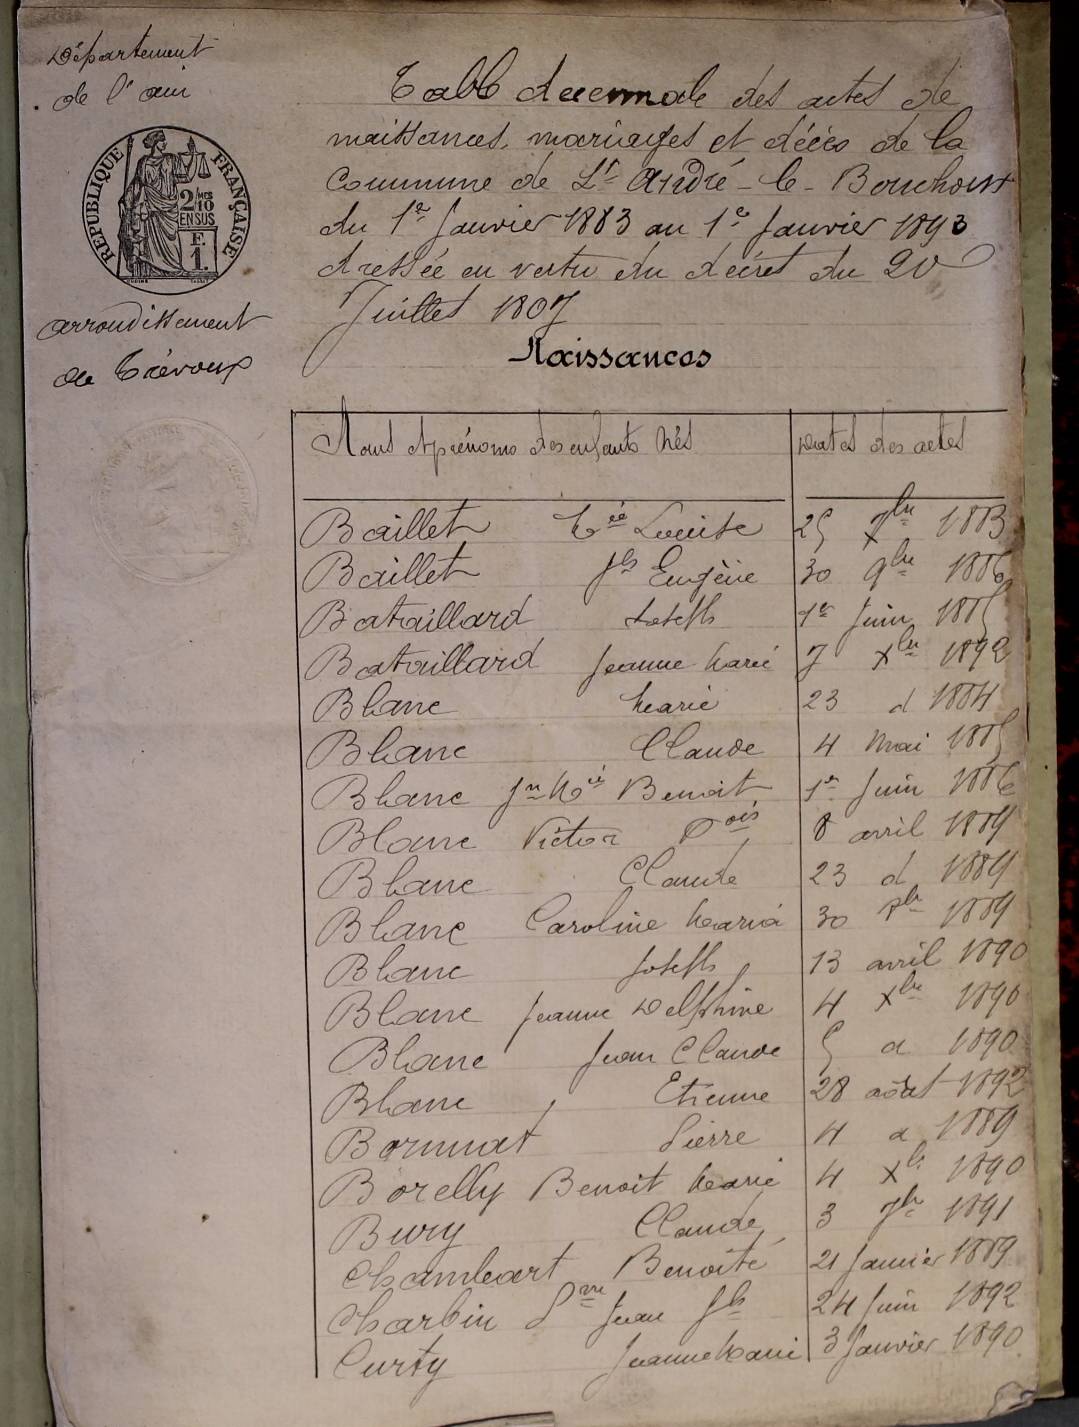 Département
de l'ain
RÉPUBLIQUE FRANÇAISE
2/10
EN SUS
F.
1.
arrondissement
de Trévoux
Table decennale des actes de
naissances, mariages et décès de la
Commune de St André-le-Bouchoux
du 1er Janvier 1883 au 1er Janvier 1893
dressée en vertu du décret du 20
Juillet 1807
Naissances
Noms et prénoms des enfants nés Dates des actes
Baillet Louise 25 1883
Baillet Jph Eugène 30 9bre 1886
Bataillard Joseph 1er Juin 1885
Bataillard Jeanne Marie 7 Xbre 1892
Blanc Marie 23 d 1884
Blanc Claude 4 Mai 1885
Blanc Jn Mie Benoit 1er Juin 1886
Blanc Victor Fois 8 avril 1889
Blanc Claude 23 d 1889
Blanc Caroline Maria 30 8bre 1889
Blanc Joseph 13 avril 1890
Blanc Jeanne Delphine 4 Xbre 1890
Blanc Jean Claude 5 d 1890
Blanc Etienne 28 août 1892
Bornnat Pierre 4 d 1889
Borelly Benoit Marie 4 Xbre 1890
Bury Claude 3 7bre 1891
Chambart Benoîte 21 Janvier 1889
Charbin Jean Jph 24 Juin 1892
Curty Jeanne Marie 3 Janvier 1890